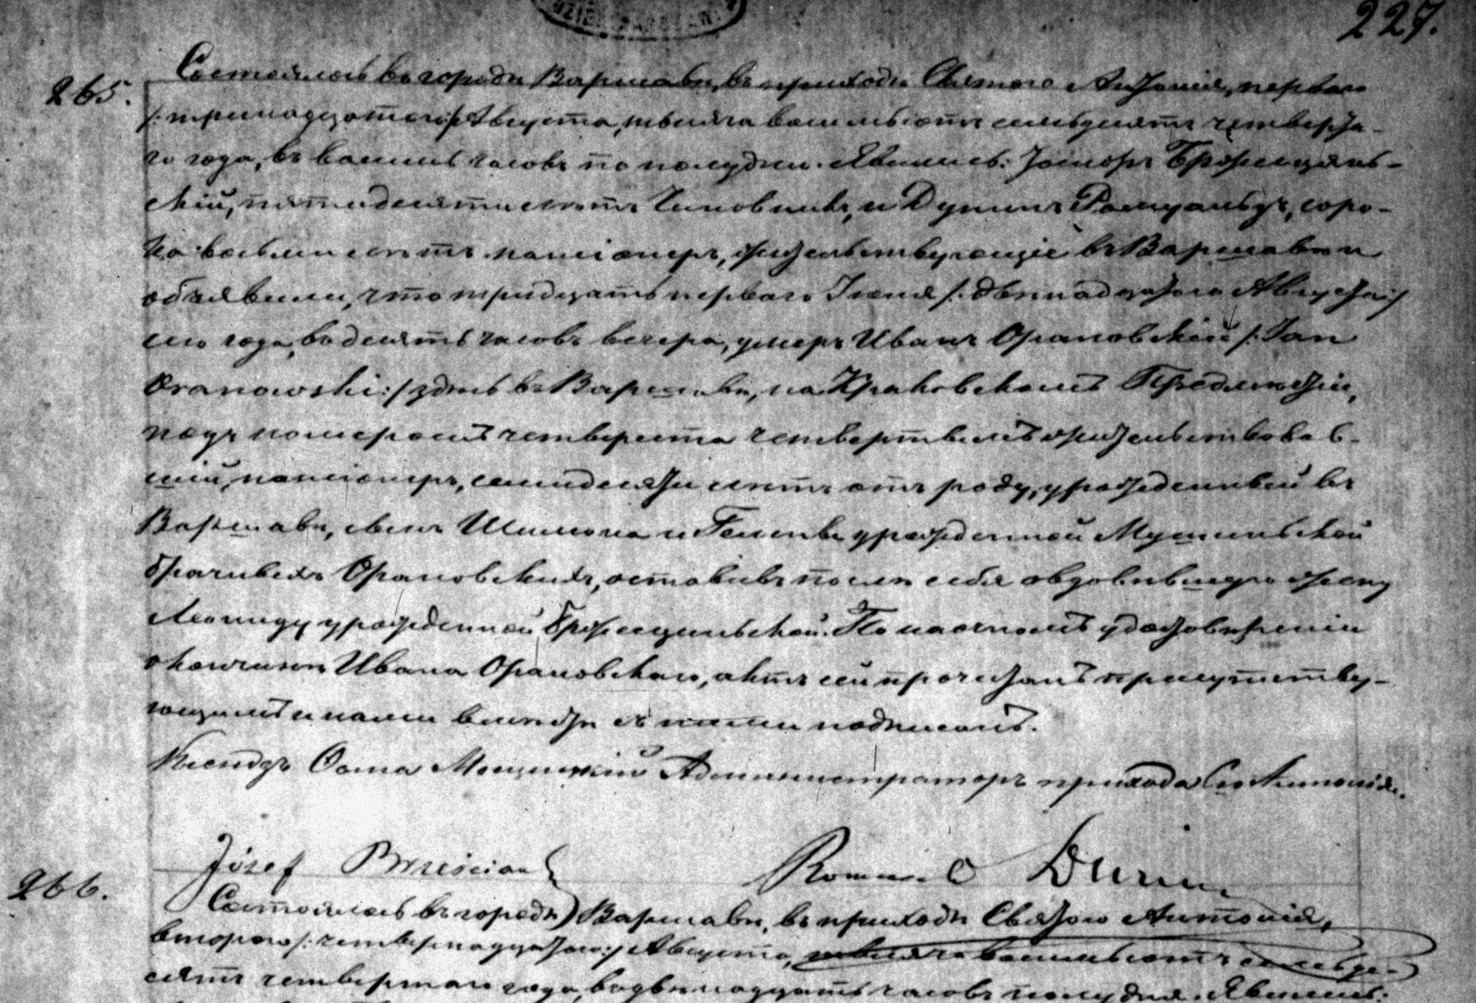 227.
265.
Состоялось въ городѣ Варшавѣ, въ приходѣ Святаго Антонія, перваго
/:тринадцатаго:/ Августа, тысяча восемьсотъ семьдесятъ четверта-
го года, въ восемь часовъ по полудни. Явились: Іосифъ Бржесцянь-
скій, пятидесяти лѣтъ Чиновникъ, и Дунинъ Ромуальдъ, соро-
ка восьми лѣтъ пансіонеръ, жительствующіе въ Варшавѣ и
объявили, что тридцать перваго Іюля /:двѣнадцатаго Августа:/
сего года, въ десять часовъ вечера, умеръ Иванъ Орановскій /:Jan
Oranowski:/ здѣсь въ Варшавѣ, на Краковскомъ Предмѣстіи,
подъ номеромъ четыреста четвертымъ жительствовав-
шій, пансіонеръ, семидесяти лѣтъ отъ роду, урожденный въ
Варшавѣ, сынъ Шимона и Елены урожденной
брачныхъ Орановскихъ, оставивъ послѣ себя овдовѣвшую жену
Леониду урожденной Бржесцяньской. По наочномъ удостовѣреніи
о кончинѣ Ивана Орановскаго, актъ сей прочитанъ присутству-
ющимъ и нами вмѣстѣ съ ними подписанъ.
Ксендзъ Ѳома Администраторъ прихода Св. Антонія.
Józef Brześciań
Romu Dunin
266.
Состоялось въ городѣ Варшавѣ, въ приходѣ Святаго Антонія,
втораго /:четырнадцатаго:/ Августа, тысяча восемьсотъ семьде-
сятъ четвертаго года, въ двѣнадцать часовъ полудня. Явились: